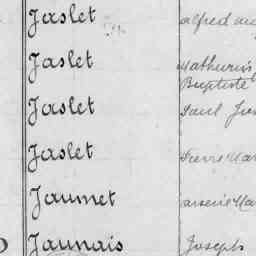 Jaslet alfred
Jaslet Mathurin
Baptiste
Jaslet Paul
Jaslet Pierre Mar
Jaumet arsène Ma
Jaunais Joseph